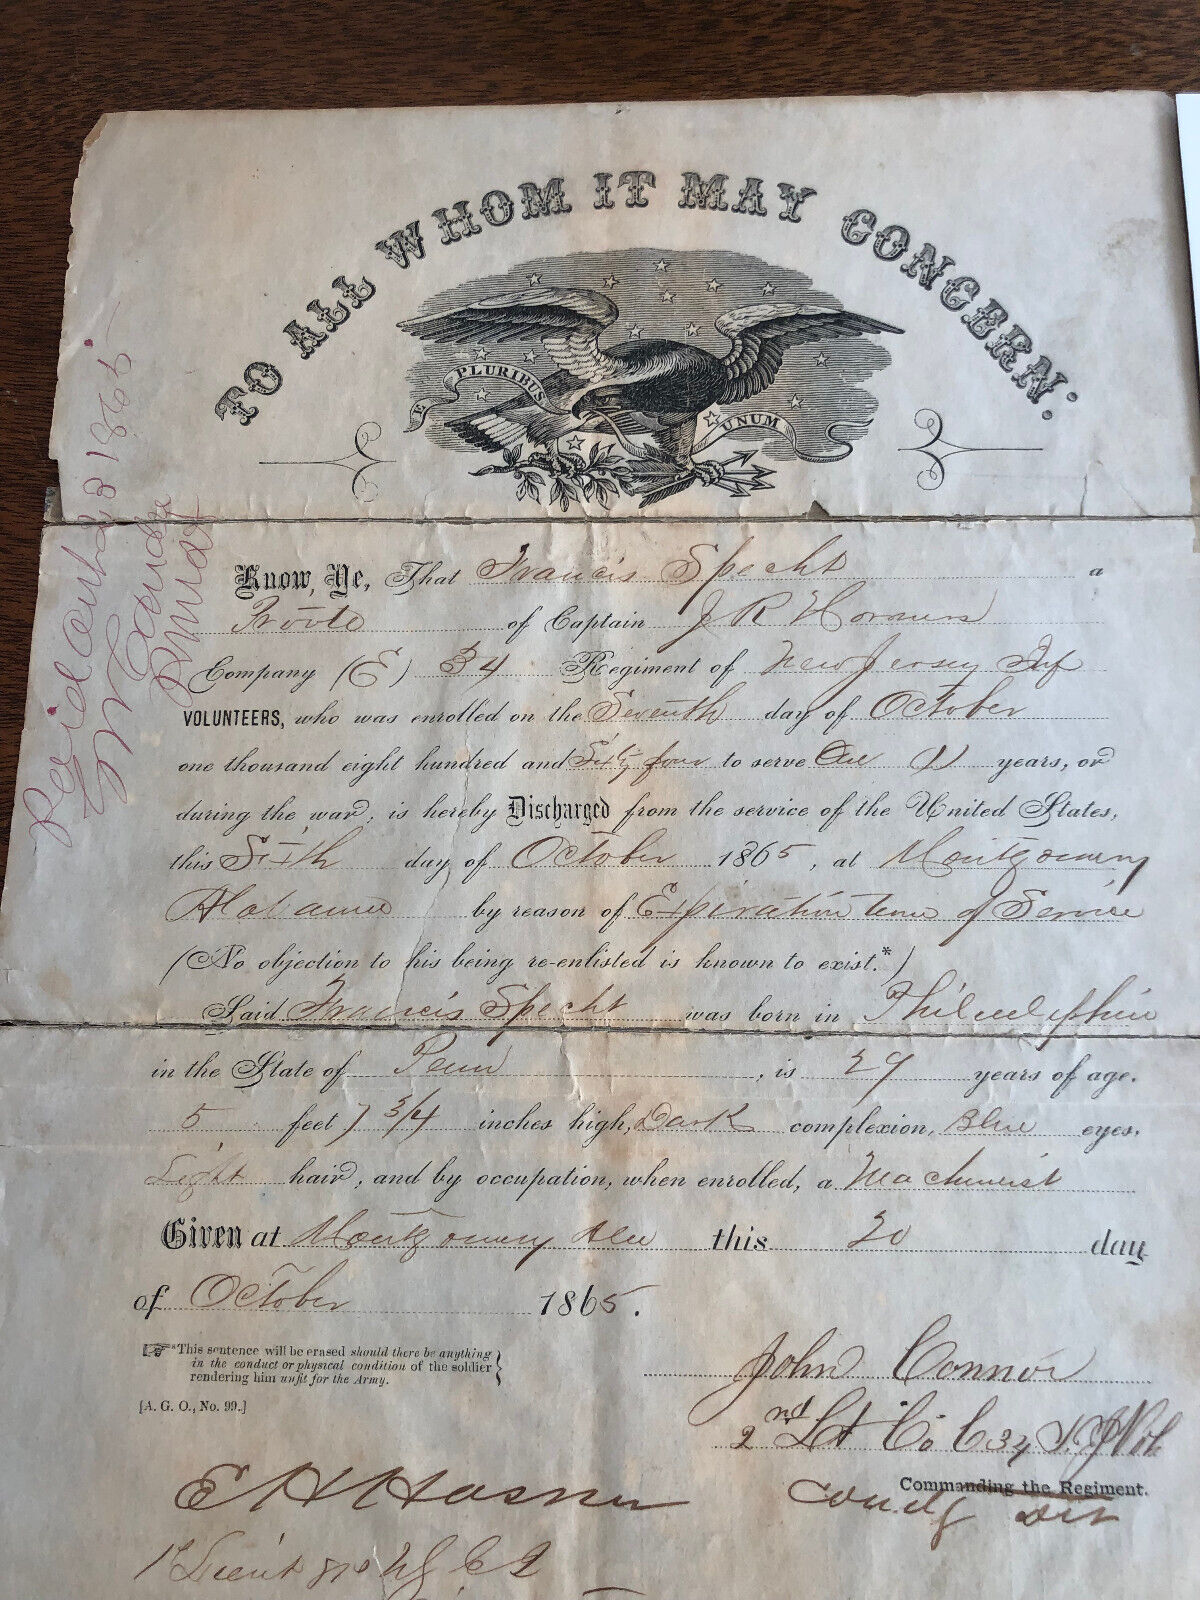 TO ALL WHOM IT MAY CONCERN:
E PLURIBUS UNUM
Know, Ye, That Francis Specht a
of Captain J R
Company (E) 34 Regiment of New Jersey Inf
VOLUNTEERS, who was enrolled on the Seventh day of October
one thousand eight hundred and Sixty four to serve One (1) years, or
during the war, is hereby Discharged from the service of the United States,
this Sixth day of October 1865, at Montgomery
Alabama by reason of Expiration term of Service
(No objection to his being re-enlisted is known to exist.*)
Said Francis Specht was born in Philadelphia
in the State of Penn, is years of age.
5 feet 7 3/4 inches high, Dark complexion, Blue eyes,
Light hair, and by occupation, when enrolled, a Machinist
Given at Montgomery Ala this 20 day
of October 1865.
*This sentence will be erased should there be anything
in the conduct or physical condition of the soldier
rendering him unfit for the Army.
[A. G. O., No. 99.]
John Connor
2nd Lt Co C 34 N.J Vol
Commanding the Regiment.
E H
1st Lieut
Paid 28 1865